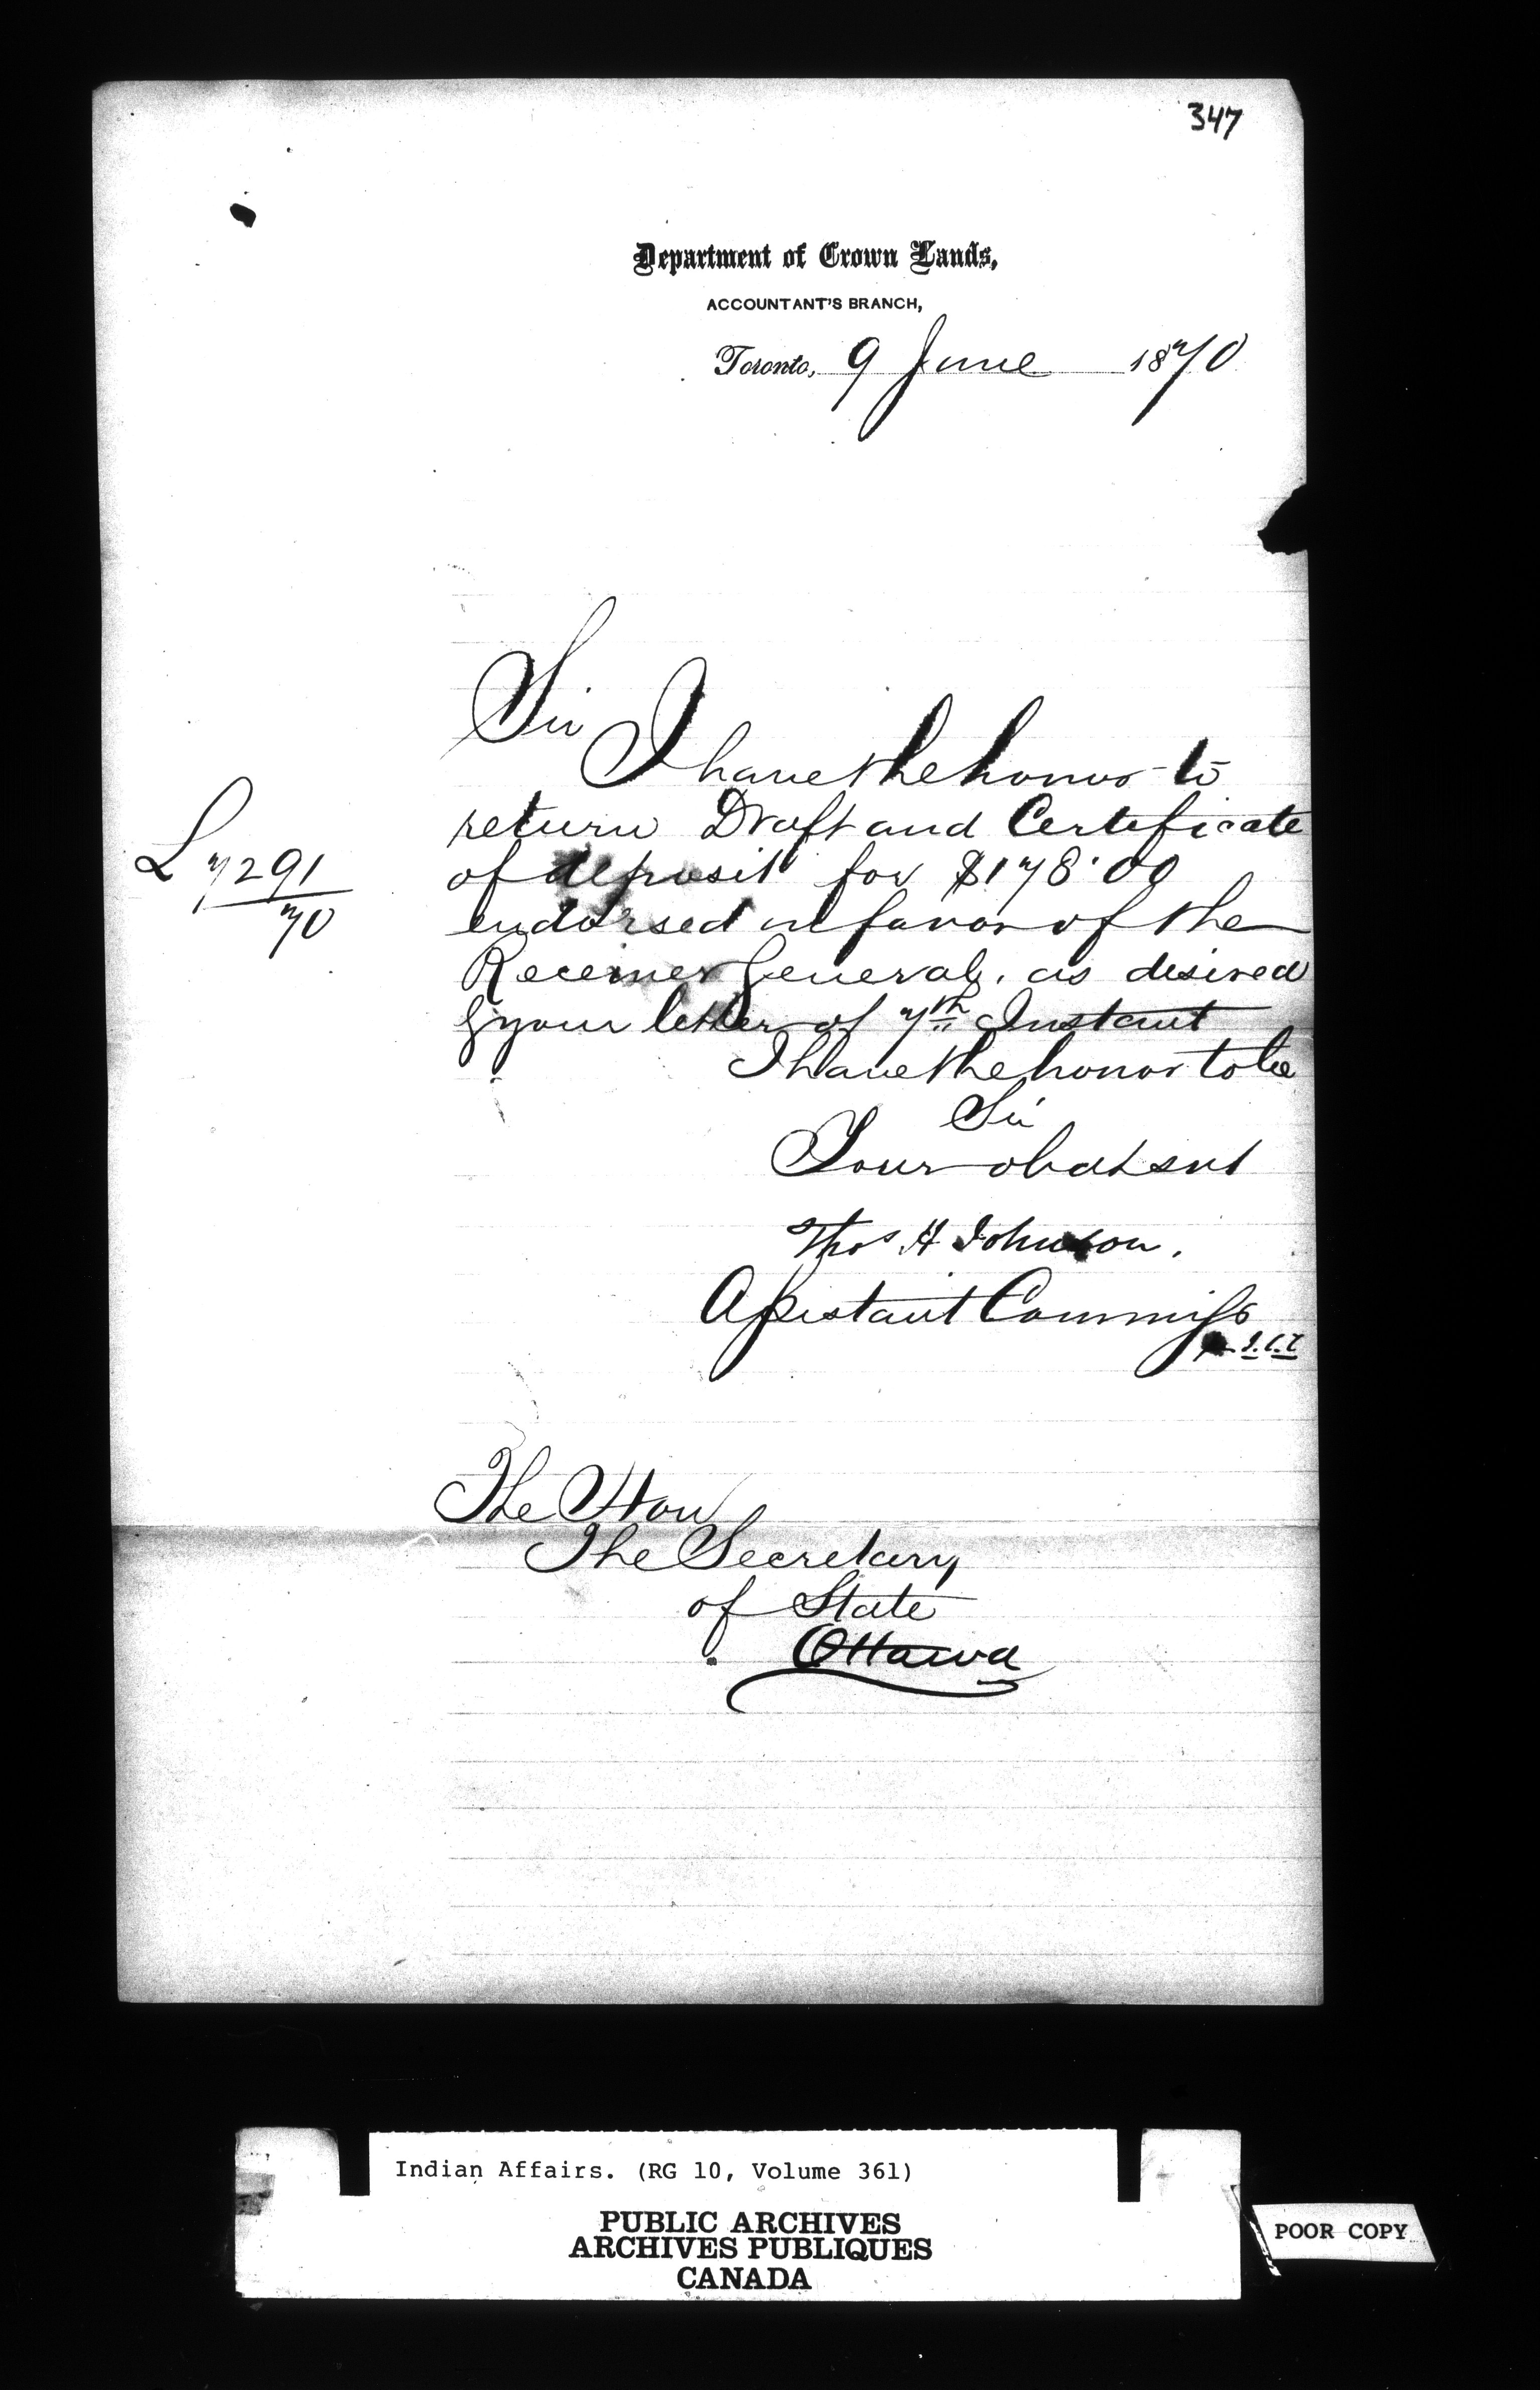 347
Department of Crown Lands,
ACCOUNTANT'S BRANCH,
Toronto, 9 June 1870
Sir
I have the honor to
return Draft and Certificate
L 7291/70
of deposit for $178.00
endorsed in favor of the
Receiver General, as desired
by your letter of 7th Instant
I have the honor to be
Sir
Your obdt svt
Thos H Johnson.
Assistant Commissr
The Hon
The Secretary
of State
Ottawa
Indian Affairs. (RG 10, Volume 361)
PUBLIC ARCHIVES
ARCHIVES PUBLIQUES
CANADA
POOR COPY